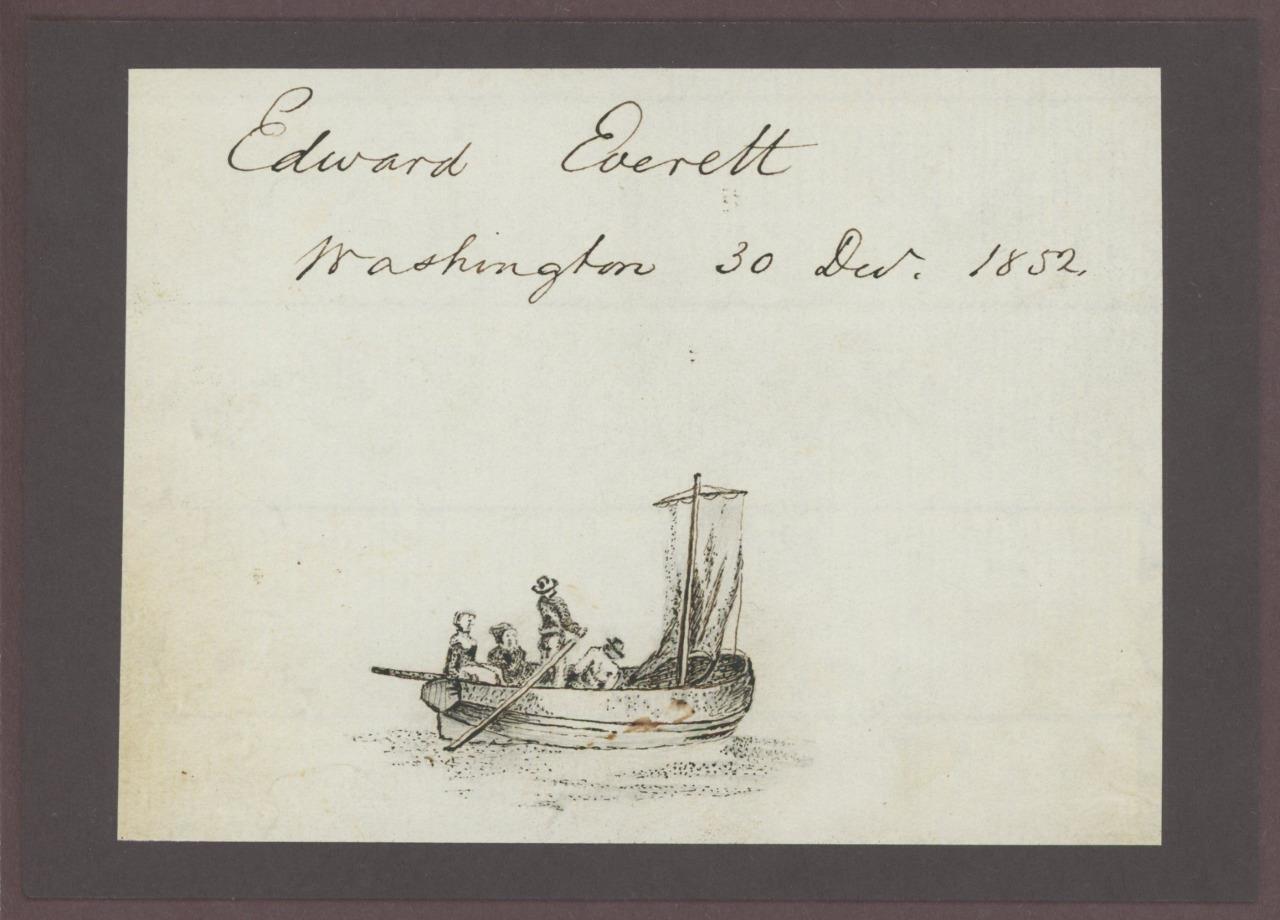 Edward Everett
Washington 30 Dec. 1852.